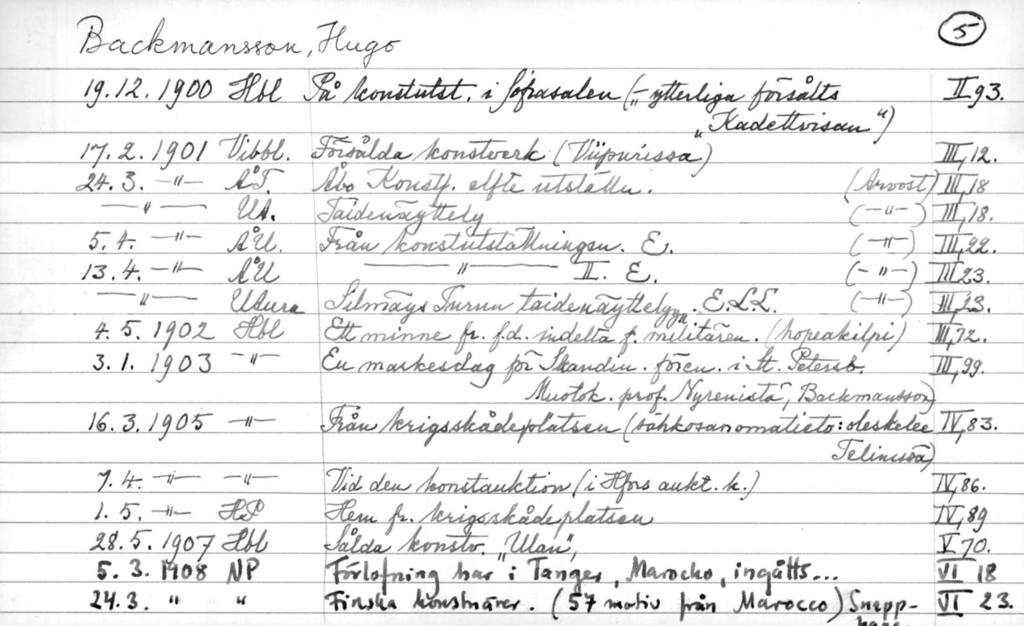 Backmansson, Hugo 5
19.12.1900 Hbl På konstutst. i Sofrasalen (-"- ytterliga försålts II 93.
"Kadettvisan")
17.2.1901 Vibbl. Försålda konstverk (Viipurissa) III, 12.
24.3. -"- ÅT. Åbo Konstf. elfte utställn. (Arvost) III, 18
-"- UA. Taidenäyttely (-"-) III, 18.
5.4. -"- ÅU. Från konstutställningen. E. (-"-) III, 22.
13.4. -"- ÅU -"- II. E. (-"-) III 23
-"- UAura Silmäys Turun taidenäyttelyyn. E.L.L. (-"-) III, 23.
4.5.1902 Hbl Ett minne fr. f.d. indelta f. militären. (hopeakilpi) III, 72.
3.1.1903 -"- En markesdag för Skandin. fören. i St. Petersb. III, 99.
Muotok. prof. Nyrenistä, Backmansson)
16.3.1905 -"- Från krigsskådeplatsen (sähkösanomatieto: oleskelee IV, 83.
Telinissä)
7.4. -"- -"- Vid den konstauktion (i Hfors aukt. k.) IV, 86.
1.5. -"- HP Hem fr. krigsskådeplatsen IV, 89
28.5.1907 Hbl Sålda konstv. "Ulan", V 70.
5.3.1908 NP Förlofning har i Tanger, Marocko, ingåtts... VI 18
24.3. " " Finska konstnärer. (57 motiv från Marocco) Snapp- VI 23.